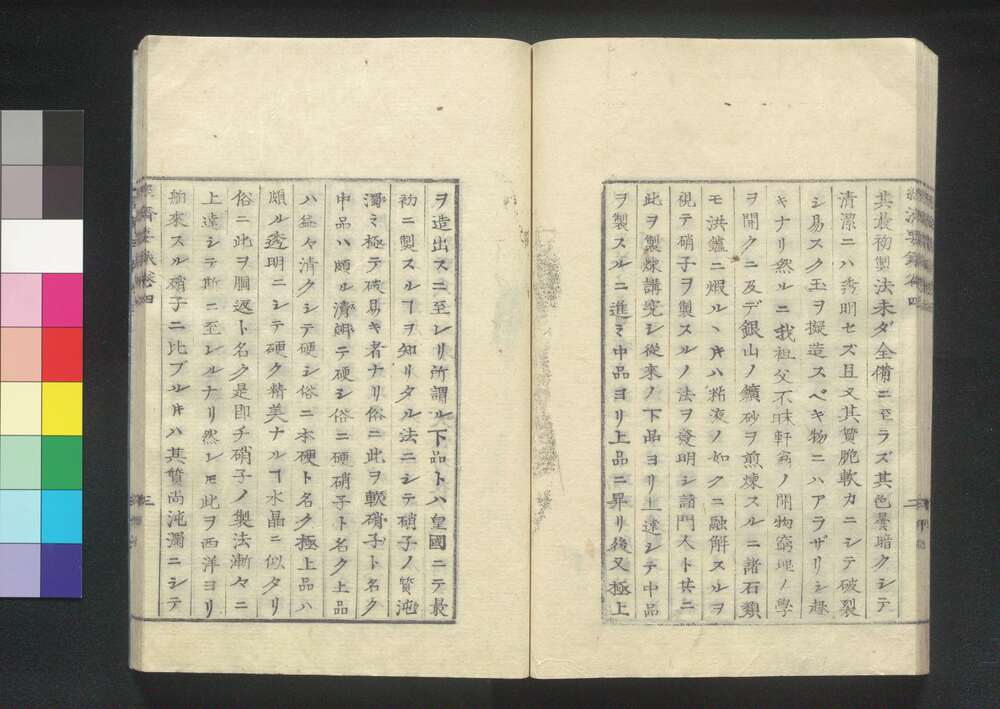 其最初製法未ダ全備ニ至ラズ其色曇暗クシテ
清潔ニハ透明セズ且又其質脆軟カニシテ破裂
シ易スク玉ヲ擬造スベキ物ニハアラザリシ趣
キナリ然ルニ我祖父不昧軒翁ノ開物窮理ノ學
ヲ開クニ及デ銀山ノ鑛砂ヲ煎煉スルニ諸石類
モ洪鑪ニ煆ルヽ𪜈ハ粘液ノ如クニ融解スルヲ
視テ硝子ヲ製スルノ法ヲ發明シ諸門人ト共ニ
此ヲ製煉講究シ從來ノ下品ヨリ上達シテ中品
ヲ製スルニ進ミ中品ヨリ上品ニ昇リ後又極上
二
ヲ造出スニ至レリ所謂ル下品トハ皇國ニテ最
初ニ製スルヿヲ知リタル法ニシテ硝子ノ質沌
濁ミ極テ破易キ者ナリ俗ニ此ヲ軟硝子ト名ク
中品ハ頗ル清潔ニテ硬シ俗ニ硬硝子ト名ク上品
ハ益々清クシテ硬シ俗ニ本硬ト名ク極上品ハ
頗ル透明ニシテ硬ク精美ナルヿ水晶ニ似タリ
俗ニ此ヲ胴返ト名ク是即チ硝子ノ製法漸々ニ
上達シテ斯ニ至レルナリ然レ𪜈此ヲ西洋ヨリ
舶來スル硝子ニ比ブル𪜈ハ其質尚沌濁ニシテ
卷四
三